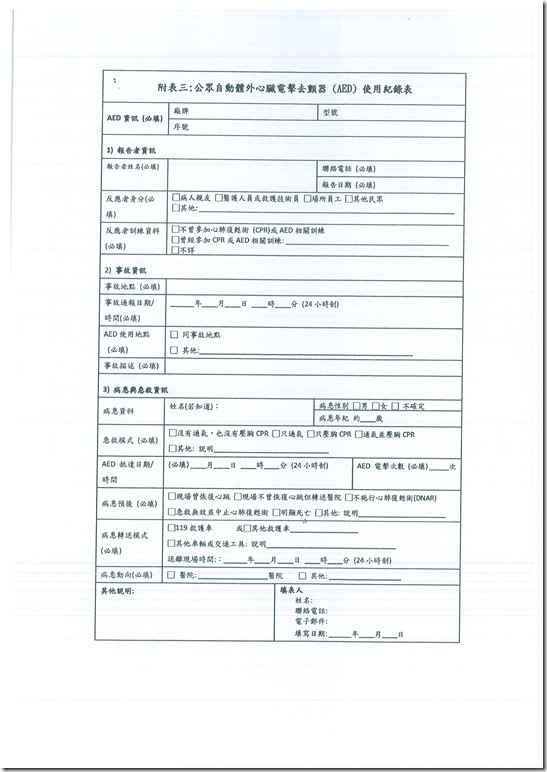 附表三:公眾自動體外心臟電擊去顫器 (AED) 使用紀錄表
AED 資訊 (必填)
廠牌
型號
序號
1) 報告者資訊
報告者姓名(必填)
聯絡電話 (必填)
報告日期 (必填)
反應者身分(必填)
□病人親友 □醫護人員或救護技術員 □場所員工 □其他民眾
□其他:
反應者訓練資料
(必填)
□不曾參加心肺復甦術 (CPR)或 AED 相關訓練
□曾經參加 CPR 或 AED 相關訓練:
□不詳
2) 事故資訊
事故地點 (必填)
事故通報日期/
時間(必填)
____年____月____日 ____時____分 (24 小時制)
AED 使用地點
(必填)
□ 同事故地點
□ 其他:
事故描述 (必填)
3) 病患與急救資訊
病患資料
姓名(若知道):
病患性別 □男 □女 □ 不確定
病患年紀 約____歲
急救模式 (必填)
□沒有通氣,也沒有壓胸 CPR □只通氣 □只壓胸 CPR □通氣並壓胸 CPR
□其他: 說明
AED 抵達日期/
時間
(必填)____月____日 ____時____分 (24 小時制)
AED 電擊次數 (必填)____次
病患預後 (必填)
□現場曾恢復心跳 □現場不曾恢復心跳但轉送醫院 □不施行心肺復甦術(DNAR)
□急救無效並中止心肺復甦術 □明顯死亡 □其他: 說明
病患轉送模式
(必填)
□119 救護車 或□其他救護車
□其他車輛或交通工具: 說明
送離現場時間: ____年____月____日 ____時____分 (24 小時制)
病患動向(必填)
□ 醫院:____醫院 □ 其他:
其他說明:
填表人
姓名:
聯絡電話:
電子郵件:
填寫日期:____年____月____日